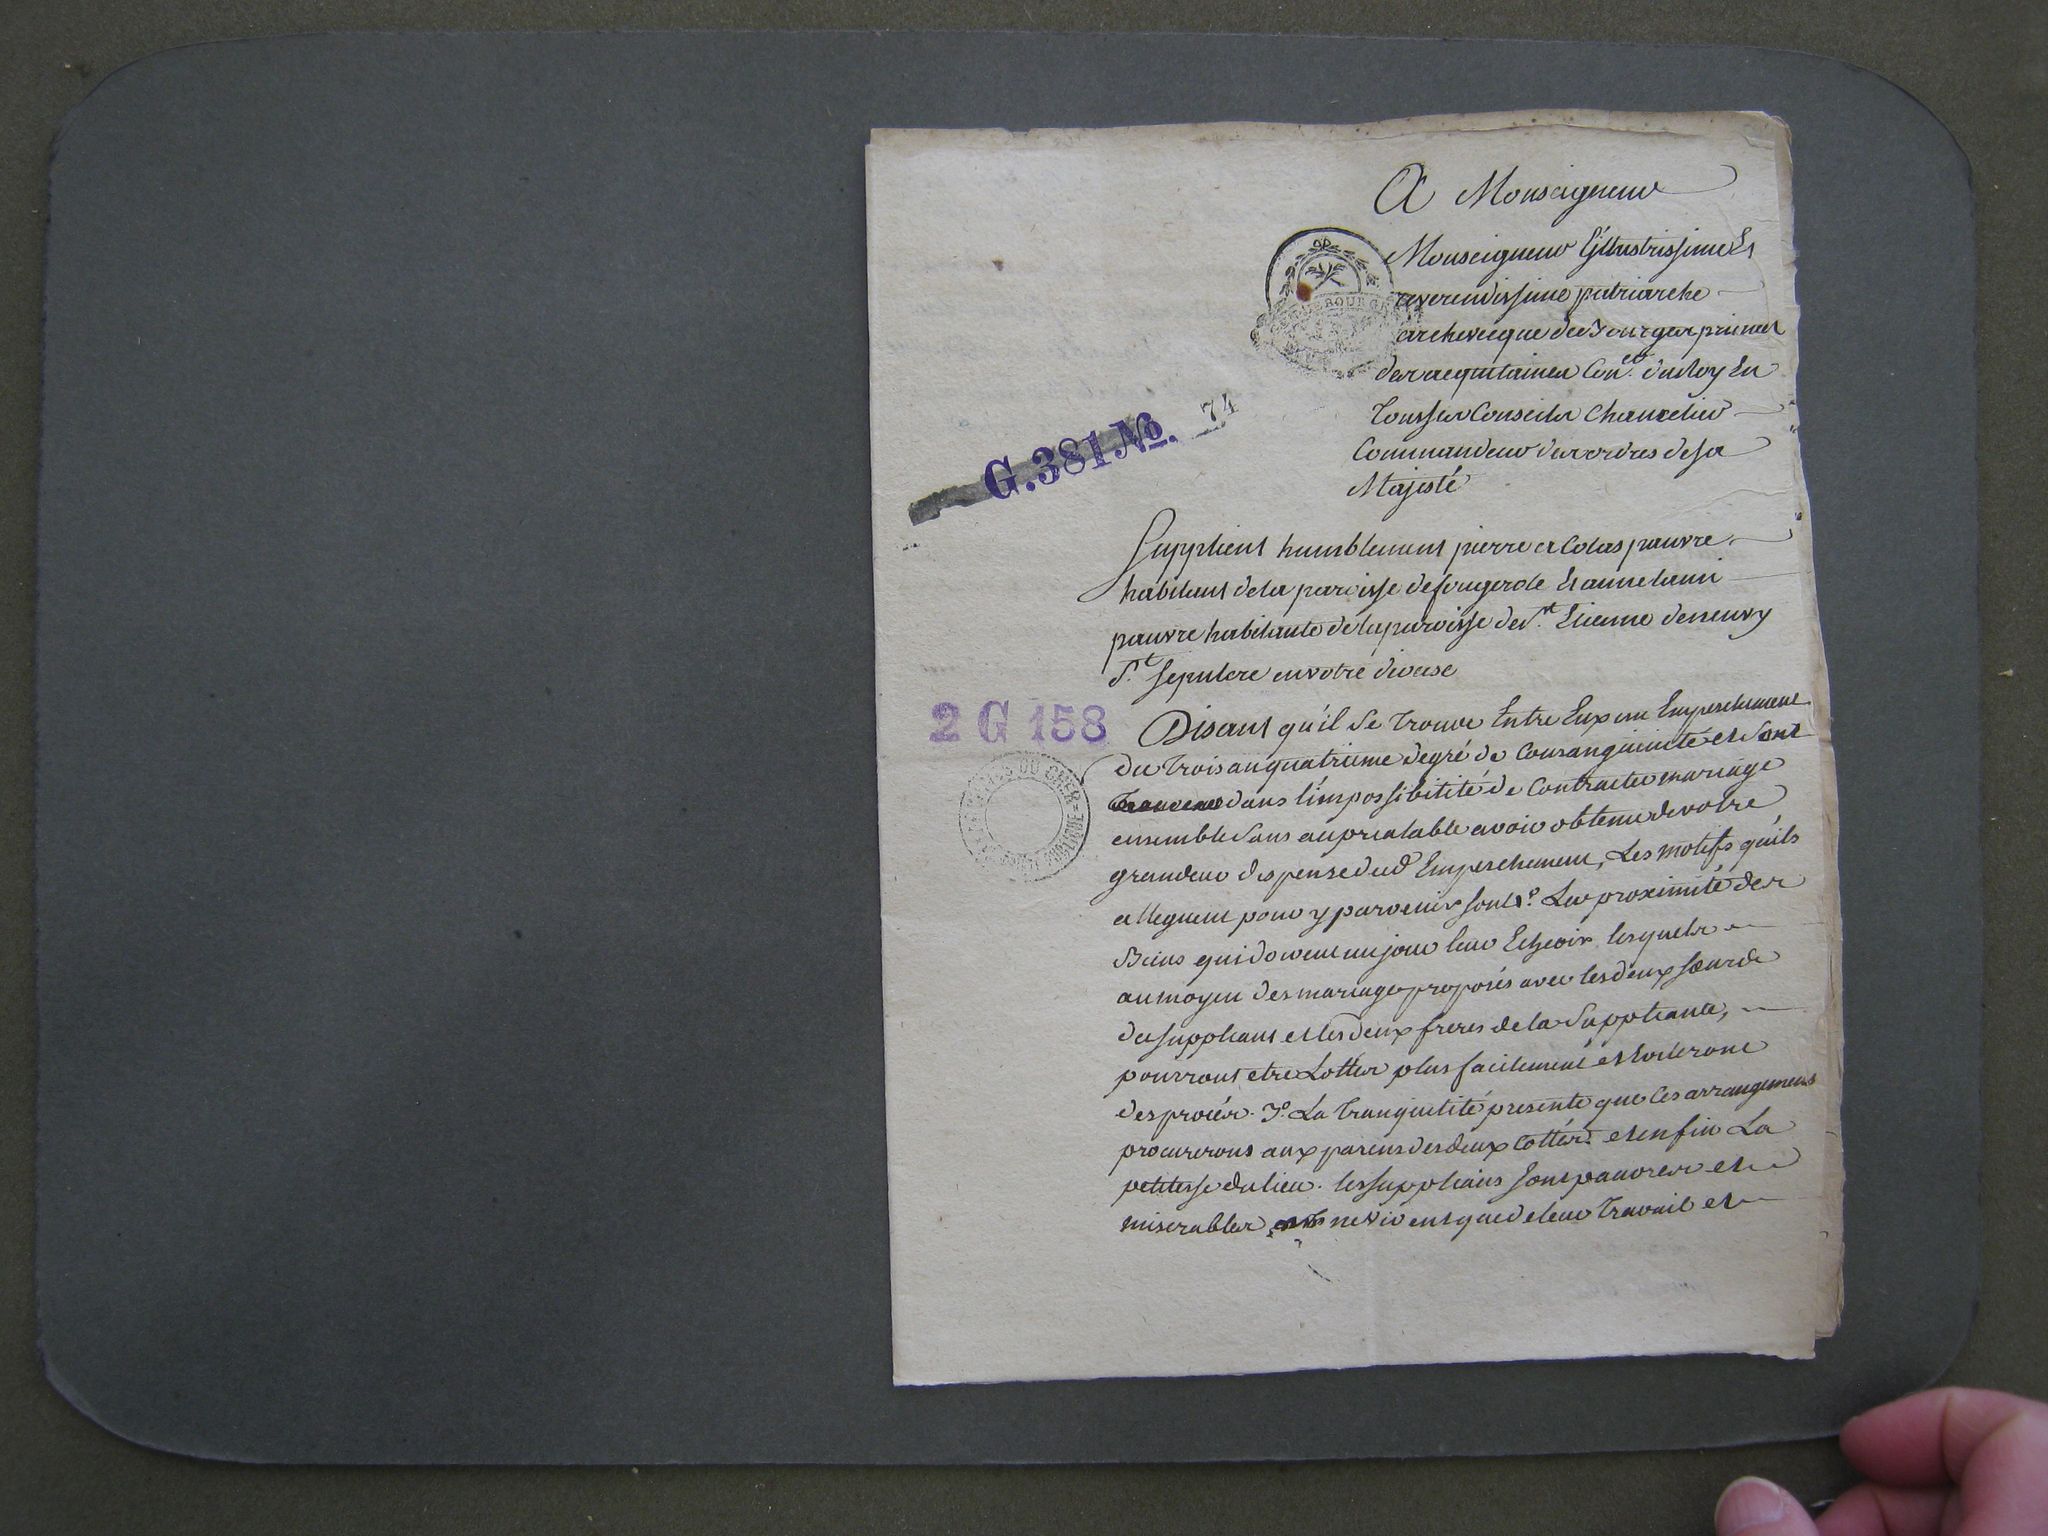 A Monseigneur
Monseigneur L'illustrissime Et
reverendissime patriarche
archeveque de Bourges primat
des acquitaines Con.er du Roy En
Tous ses Conseils Chancelier
Commandeur des ordres de sa
Majesté
G.381 No. 74
Supplient humblement pierre
habitant de la paroisse de fougerole Et anne lami
pauvre habitante de la paroisse de St. Etienne de neuvy
St. Sepulcre en votre diocese
2 G 158
Disant qu'il Se trouve Entre Eux un Empeschement
du trois au quatrieme degré de Consanguinité et Sont
dans l'impossibilité de Contracter mariage
ensemble Sans au prealable avoir obtenu de votre
grandeur dispense dud Empeschement, Les motifs qu'ils
alleguent pour y parvenir sont 1o. La proximité des
Biens qui doivent un jour leur Echeoir lesquels
au moyen des mariages proposés avec les deux sœurs
du suppliant et les deux freres de la Suppliante,
pourront etre Lotties plus facilement et Eviteront
des procés. La tranquilité presente que ces arrangemens
procureront aux parens des deux cottés. et enfin La
petitesse du lieu. les supplians sont pauvres et
miserables ne vivent que de leur travail et